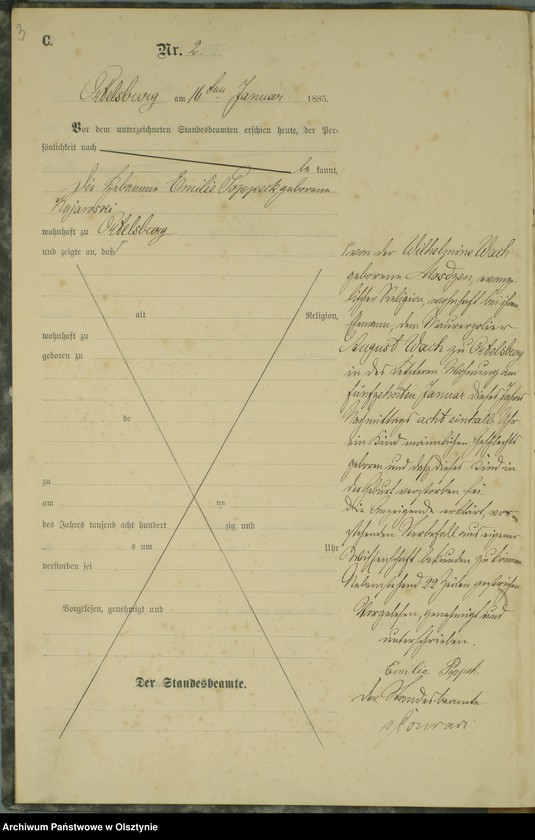 3
C.
Nr. 2.
Ortelsburg am 16ten Januar 1885.
Vor dem unterzeichneten Standesbeamten erschien heute, der Per-
sönlichkeit nach
be kannt,
die Hebamme Emilie Poppeck geborene
Kujawski
wohnhaft zu Ortelsburg
und zeigte an, daß
alt Religion,
wohnhaft zu
geboren zu
de
zu
am ten
des Jahres tausend acht hundert zig und
s um Uhr
verstorben sei
Vorgelesen, genehmigt und
Der Standesbeamte.
von der Wilhelmine Wach
geborene Mosdzen, evange-
lischer Religion, wohnhaft bei ihrem
Ehemann, dem Maurerpolier
August Wach zu Ortelsburg
in des letzteren Wohnung am
fünfzehnten Januar dieses Jahres
Nachmittags acht einhalb Uhr
ein Kind männlichen Geschlechts
geboren und daß dieses Kind in
der Geburt verstorben sei
Die Anzeigende erklärt, vor-
stehenden Sterbefall aus eigener
Wissenschaft bekunden zu können
Nebenstehend 22 Zeilen gestrichen
Vorgelesen, genehmigt und
unterschrieben.
Emilie Poppek.
Der Standesbeamte
Conrad
Archiwum Państwowe w Olsztynie